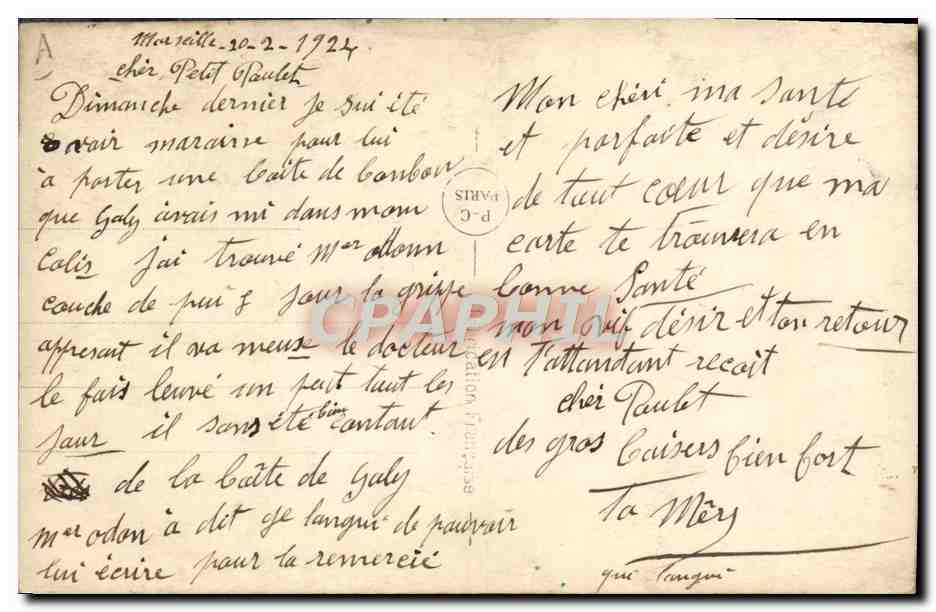 A
Marseille - 20 - 2 - 1924
chèr Petit Paulet
Dimanche dernier je sui été
voir maraine pour lui
à porter une boîte de bonbon
que Galy avais mi dans mom
Colis jai trouvé Mer
couche de pui 8 jour la grippe
appresant il va meuse le docteur
le fais leuvé un peut tout les
jour il sons été bien contant
de la boîte de Galy
Mer odon à dit qe langui de pouvoir
lui écrire pour la remercié
Mon chéri ma santé
et parfaite et désire
de tout cœur que ma
carte te trouvera en
bonne Santé
mon vif désir et ton retour
en t'attandant recoit
chér Paulet
des gros baisers bien fort
Ta Mêry
qui langui
P-C
PARIS
CPAPHIL
Française